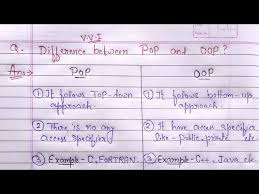 V.V.I
Q. Difference between POP and OOP?
Ans→ POP OOP
① It follows Top-down ① It follows bottom-up
approach. approach.
② There is no any ② It have access specifier
access specifier like-Public, private etc.
③ Example- C, FORTRAN. ③ Example- C++, Java etc.